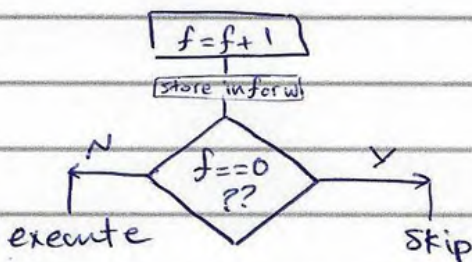 f=f+1
store in f or w
N
f==0
Y
??
execute
skip